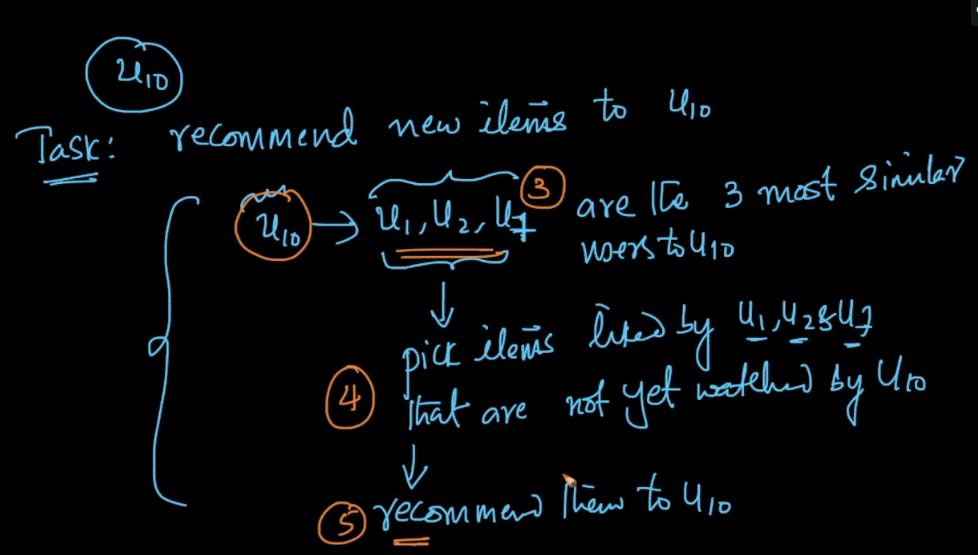 u10
Task: recommend new items to u10
u10 → u1, u2, u7 3 are the 3 most similar
users to u10
pick items liked by u1, u2 & u7
4 that are not yet watched by u10
5 recommend them to u10